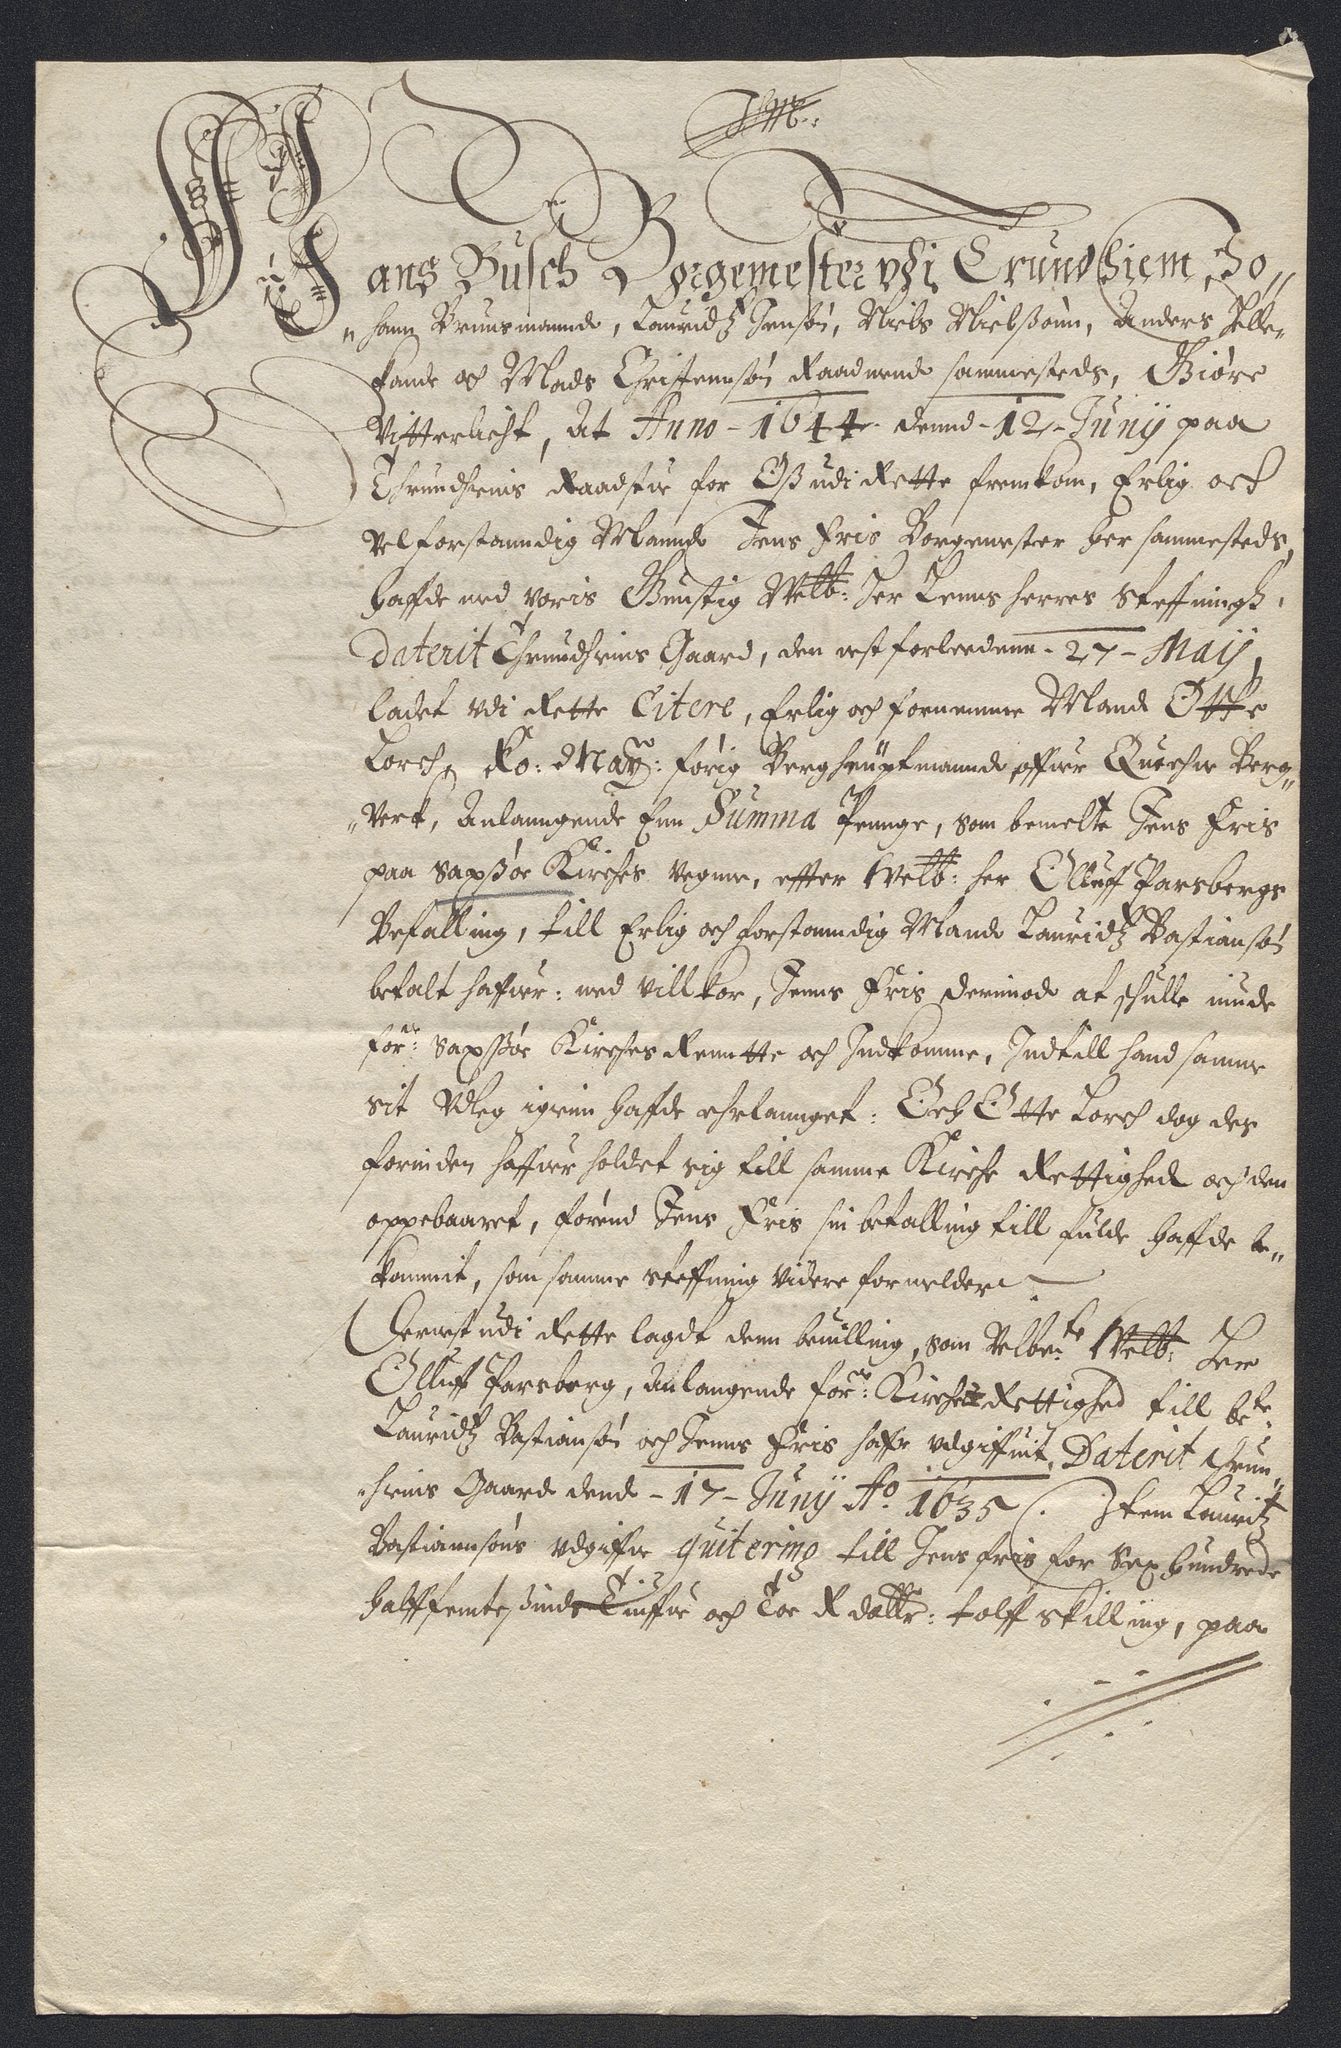 Hans Busch Borgemester vdi Trundhiem Jo„
„hann Brunsmannd, Lauridtz Jensøn, Niels Nielssønn, Anders Helle„
kande och Mads Christennsøn Raadmend sammesteds, Giøre
Vitterlicht, At Anno - 1644 - dennd - 12 - Junij paa
Thrundhiems Raadstue for Oss udi Rette fremkom, Erlig och
Velforstanndig Mannd Jens Friis Borgemester her sammesteds,
haffde med voris Gunstig Velb: Her Lenns herres Steffningh,
Daterit Thrundhiems Gaard, den nest forleedenn - 27 - Maij,
ladet vdi Rette Citere, Erlig och fornemme Mand Otte
Lorch, Ko: May: forig Berghauptmannd offuer Quechne Berg„
„verk, Anlanngende Enn Summa Penge, som bemelte Jens Friis
paa Saxsøe Kirches vegne, effter Velb: her Olluff Parsbergs
Befalling, till Erlig och forstanndig Mand Lauridtz Bastiansøn
betalt haffuer: med villkor, Jenns Friis derimod at schulle niude
for: Saxsøe Kirches Rennte och Indkomme, Indtill hand samme
sit Vdleg igien haffde erlannget: Och Otte Lorch dog des
forinden haffuer holdet sig till samme Kirche Rettighed och den
oppebaaret, førend Jens Friis sin betalling till fulde haffde be„
kommit, som samme Steffning videre formelder.
Dernest udi Rette lagdt denn beuilling, som Velbte: Velb: Her
Olluff Parsberg, Anlangende for: Kirches Rettighed till bete:
Lauridtz Bastiansøn och Jenns Friis haffr vdgiffuit, Daterit Thrun„
„hiems Gaard dend - 17 - Junij Ao 1635. Item Lauritz
Bastiannsøns vdgiffne quitering till Jens friis for Sex hundrede
halffemtesinds Tiuffue och Toe R dallr: tolff skilling, paa